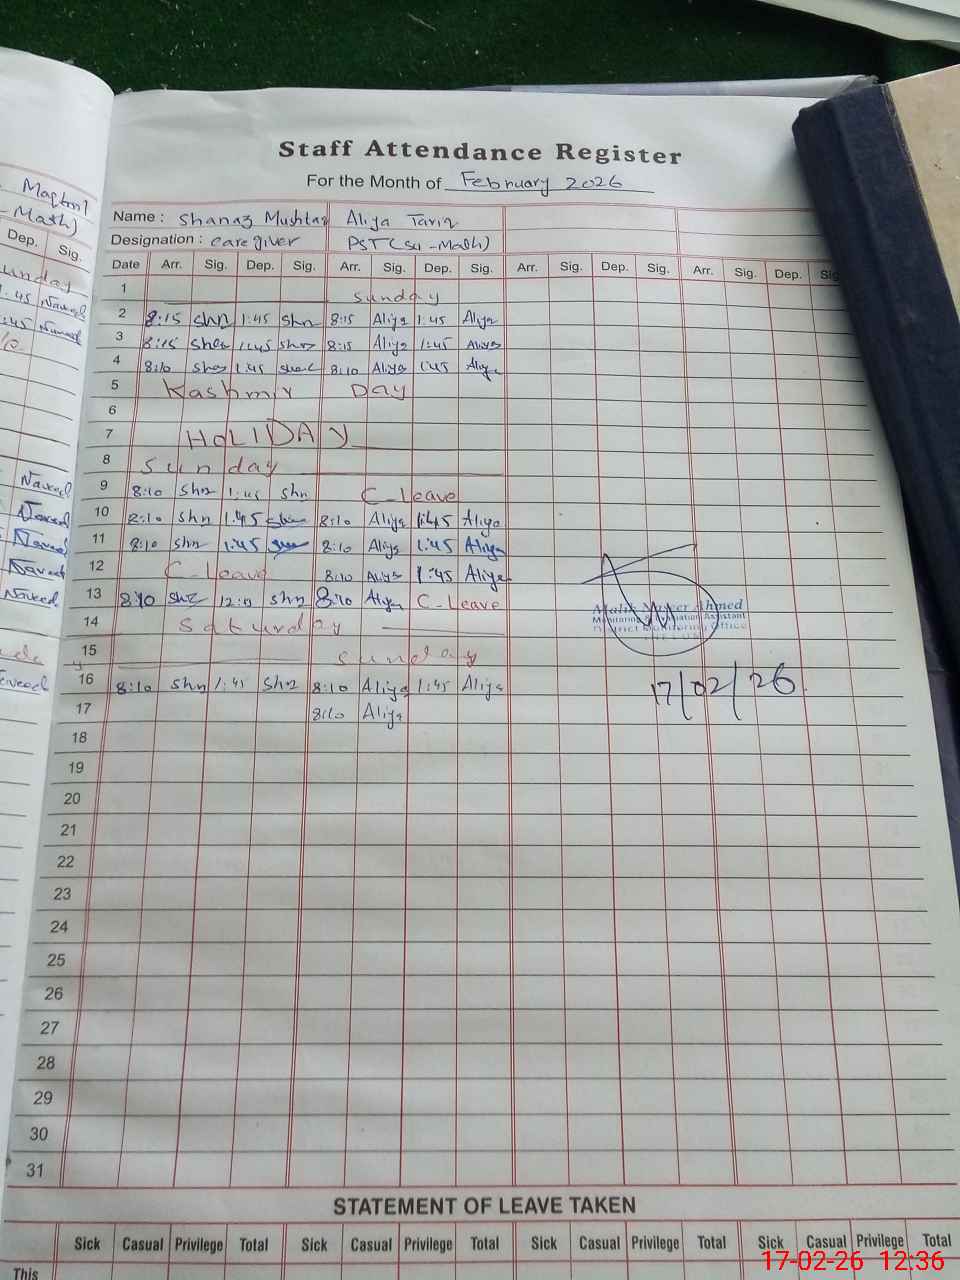 Staff Attendance Register
For the Month of February 2026
Name : Shanaz Mushtaq Aliya Tariq
Designation : caregiver PST (Sci-Math)
Date Arr. Sig. Dep. Sig. Arr. Sig. Dep. Sig. Arr. Sig. Dep. Sig. Arr. Sig. Dep. Sig.
1 Sunday
2 8:15 shn 1:45 shn 8:15 Aliya 1:45 Aliya
3 8:15 1:45 8:15 Aliya 1:45 Aliya
4 8:10 1:45 8:10 Aliya 1:45 Aliya
5 Kashmir Day
6
7 HoLIDAY
8 Sunday
9 8:10 shn 1:45 shn C-Leave
10 8:10 shn 1:45 8:10 Aliya 1:45 Aliya
11 8:10 shn 1:45 8:10 Aliya 1:45 Aliya
12 C-Leave 8:10 Aliya 1:45 Aliya
13 8:10 shn 12:0 shn 8:10 Aliya C-Leave
14 Saturday
15 Sunday
16 8:10 shn 1:45 shn 8:10 Aliya 1:45 Aliya
17 8:10 Aliya
18
19
20
21
22
23
24
25
26
27
28
29
30
31
Ahmed
Monitoring & Evaluation Assistant
District Monitoring Office
17/02/26
STATEMENT OF LEAVE TAKEN
Sick Casual Privilege Total Sick Casual Privilege Total Sick Casual Privilege Total Sick Casual Privilege Total
This
-Math)
Dep. Sig.
1:45 Naveed
1:45 Naveed
Naveed
Naveed
Naveed
Naveed
Naveed
17-02-26 12:36